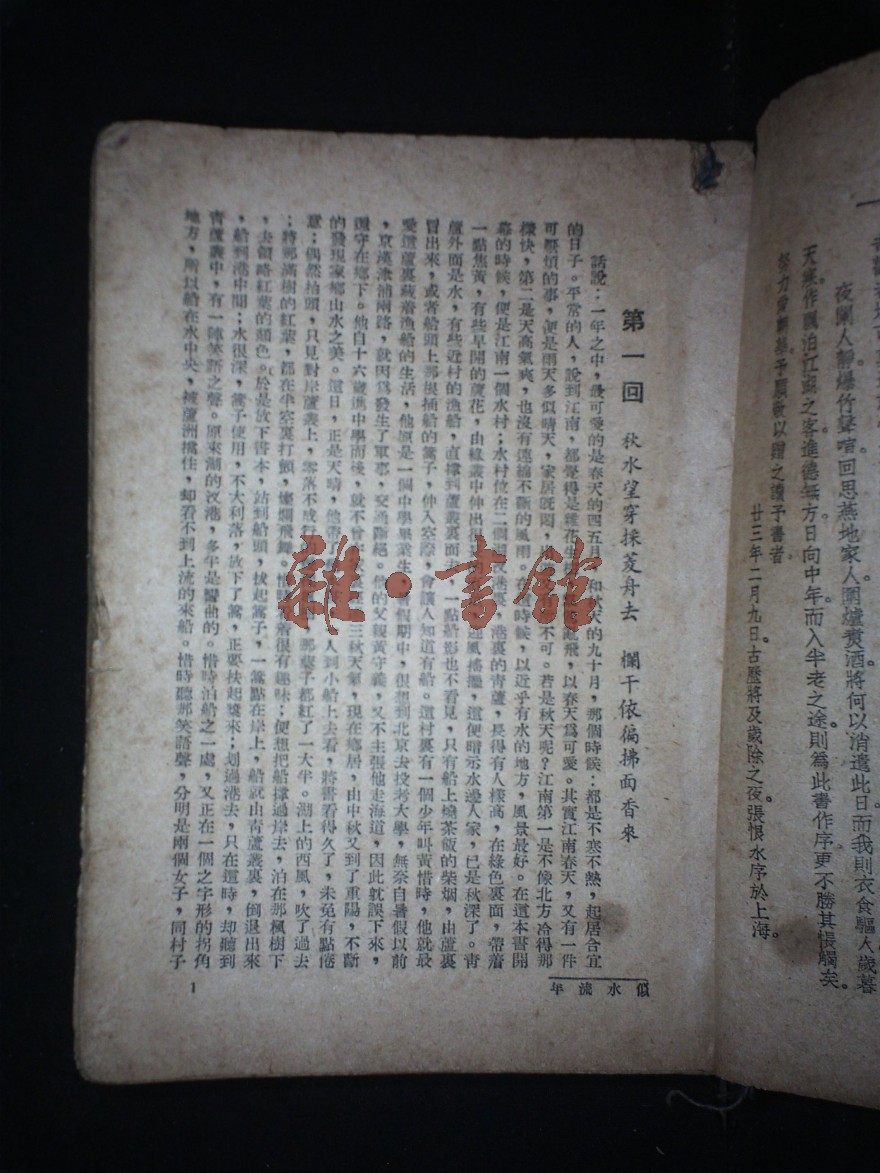 夜闌人靜爆竹聲喧回思燕地家人圍爐煑酒將何以消遣此日而我則衣食驅人歲暮
天寒作飄泊江湖之客進德無方日向中年而入半老之途則爲此書作序更不勝其悵觸矣。
努力 予願敬以贈之讀予書者
廿三年二月九日古歷將及歲除之夜張恨水序於上海。
第一回 秋水望穿採菱舟去 欄干依徧拂面香來
話說:一年之中,最可愛的是春天的四五月,和秋天的九十月,那個時候:都是不寒不熱,起居合宜
的日子。平常的人,說到江南,都覺得是雜花生 亂飛,以春天爲可愛。其實江南春天,又有一件
可厭煩的事,便是雨天多似晴天,家居旣悶, 不可。若是秋天呢?江南第一是不像北方冷得那
樣快,第二是天高氣爽,也沒有連綿不斷的風雨。在這時候,以近乎有水的地方,風景最好。在這本書開
幕的時候,便是江南一個水村;水村位在一個湖汊港 港裏的青蘆,長得有人樣高,在綠色裏面,帶着
一點焦黃,有些早開的蘆花,由綠叢中伸出很 迎風搖擺,這便暗示水邊人家,已是秋深了。青
蘆外面是水,有些近村的漁船,直撑到蘆叢裏面 一點船影也不看見,只有船上燒茶飯的柴烟,由蘆裏
冒出來,或者船頭上那根插船的篙子,伸入空際,會讓人知道有船。這村裏有一個少年叫黃惜時,他就最
愛這蘆裏藏着漁船的生活,他原是一個中學畢業生,暑假期中,很想到北京去投考大學,無奈自暑假以前
,京漢津浦兩路,就因爲發生了軍事,交通斷絕。他的父親黃守義,又不主張他走海道,因此就誤下來,
還守在鄉下。他自十六歲進中學而後,就不曾 三秋天氣,現在鄉居,由中秋又到了重陽,不斷
的發現家鄉山水之美。這日,正是天晴,他帶了 人到小船上去看,將書看得久了,未免有點倦
意;偶然抬頭,只見對岸蘆叢上,零落不成行的 那葉子都紅了一大半。湖上的西風,吹了過去
;將那滿樹的紅葉,都在半空裏打顫,燦爛飛舞。惜時看着很有趣味;便想把船撑過岸去,泊在那楓樹下
,去領略紅葉的顏色。於是放下書本,站到船頭,拔起篙子,一篙點在岸上,船就由青蘆叢裏,倒退出來
,船到港中間;水很深,篙子使用,不大利落,放下了篙,正要扶起槳來;划過港去,只在這時,却聽到
青蘆叢中,有一陣笑語之聲。原來湖的汊港,多年是彎曲的。惜時泊船之一處,又正在一個之字形的拐角
地方,所以船在水中央,被蘆洲擋住,却看不到上流的來船。惜時聽那笑語聲,分明是兩個女子,同村子
似水流年
1
雜·書館